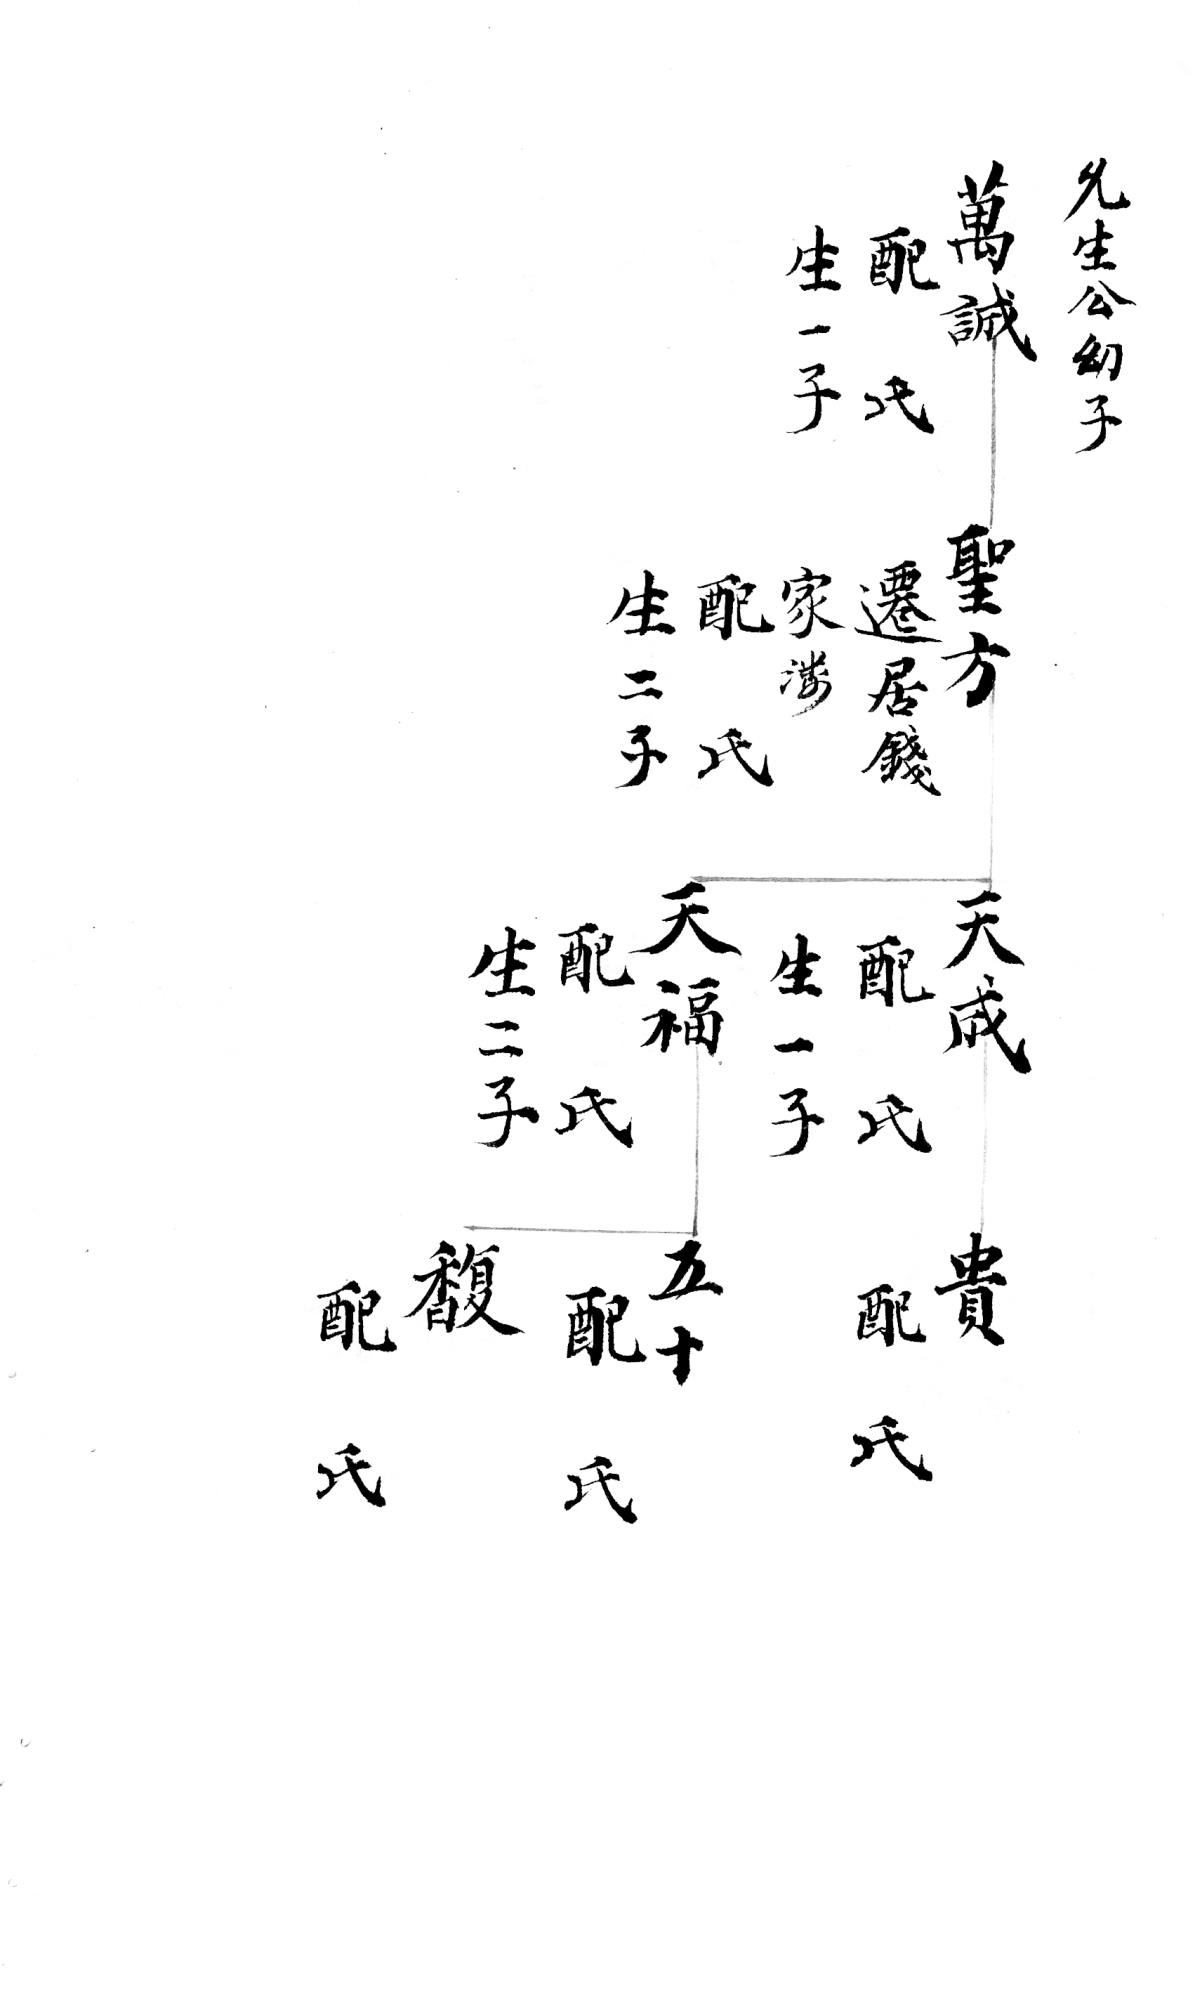 允生公幼子
萬誠
配 氏
生一子
聖方
遷居錢
家
配 氏
生二子
天成
配 氏
生一子
天福
配 氏
生二子
貴
配 氏
五十
配 氏
馥
配 氏